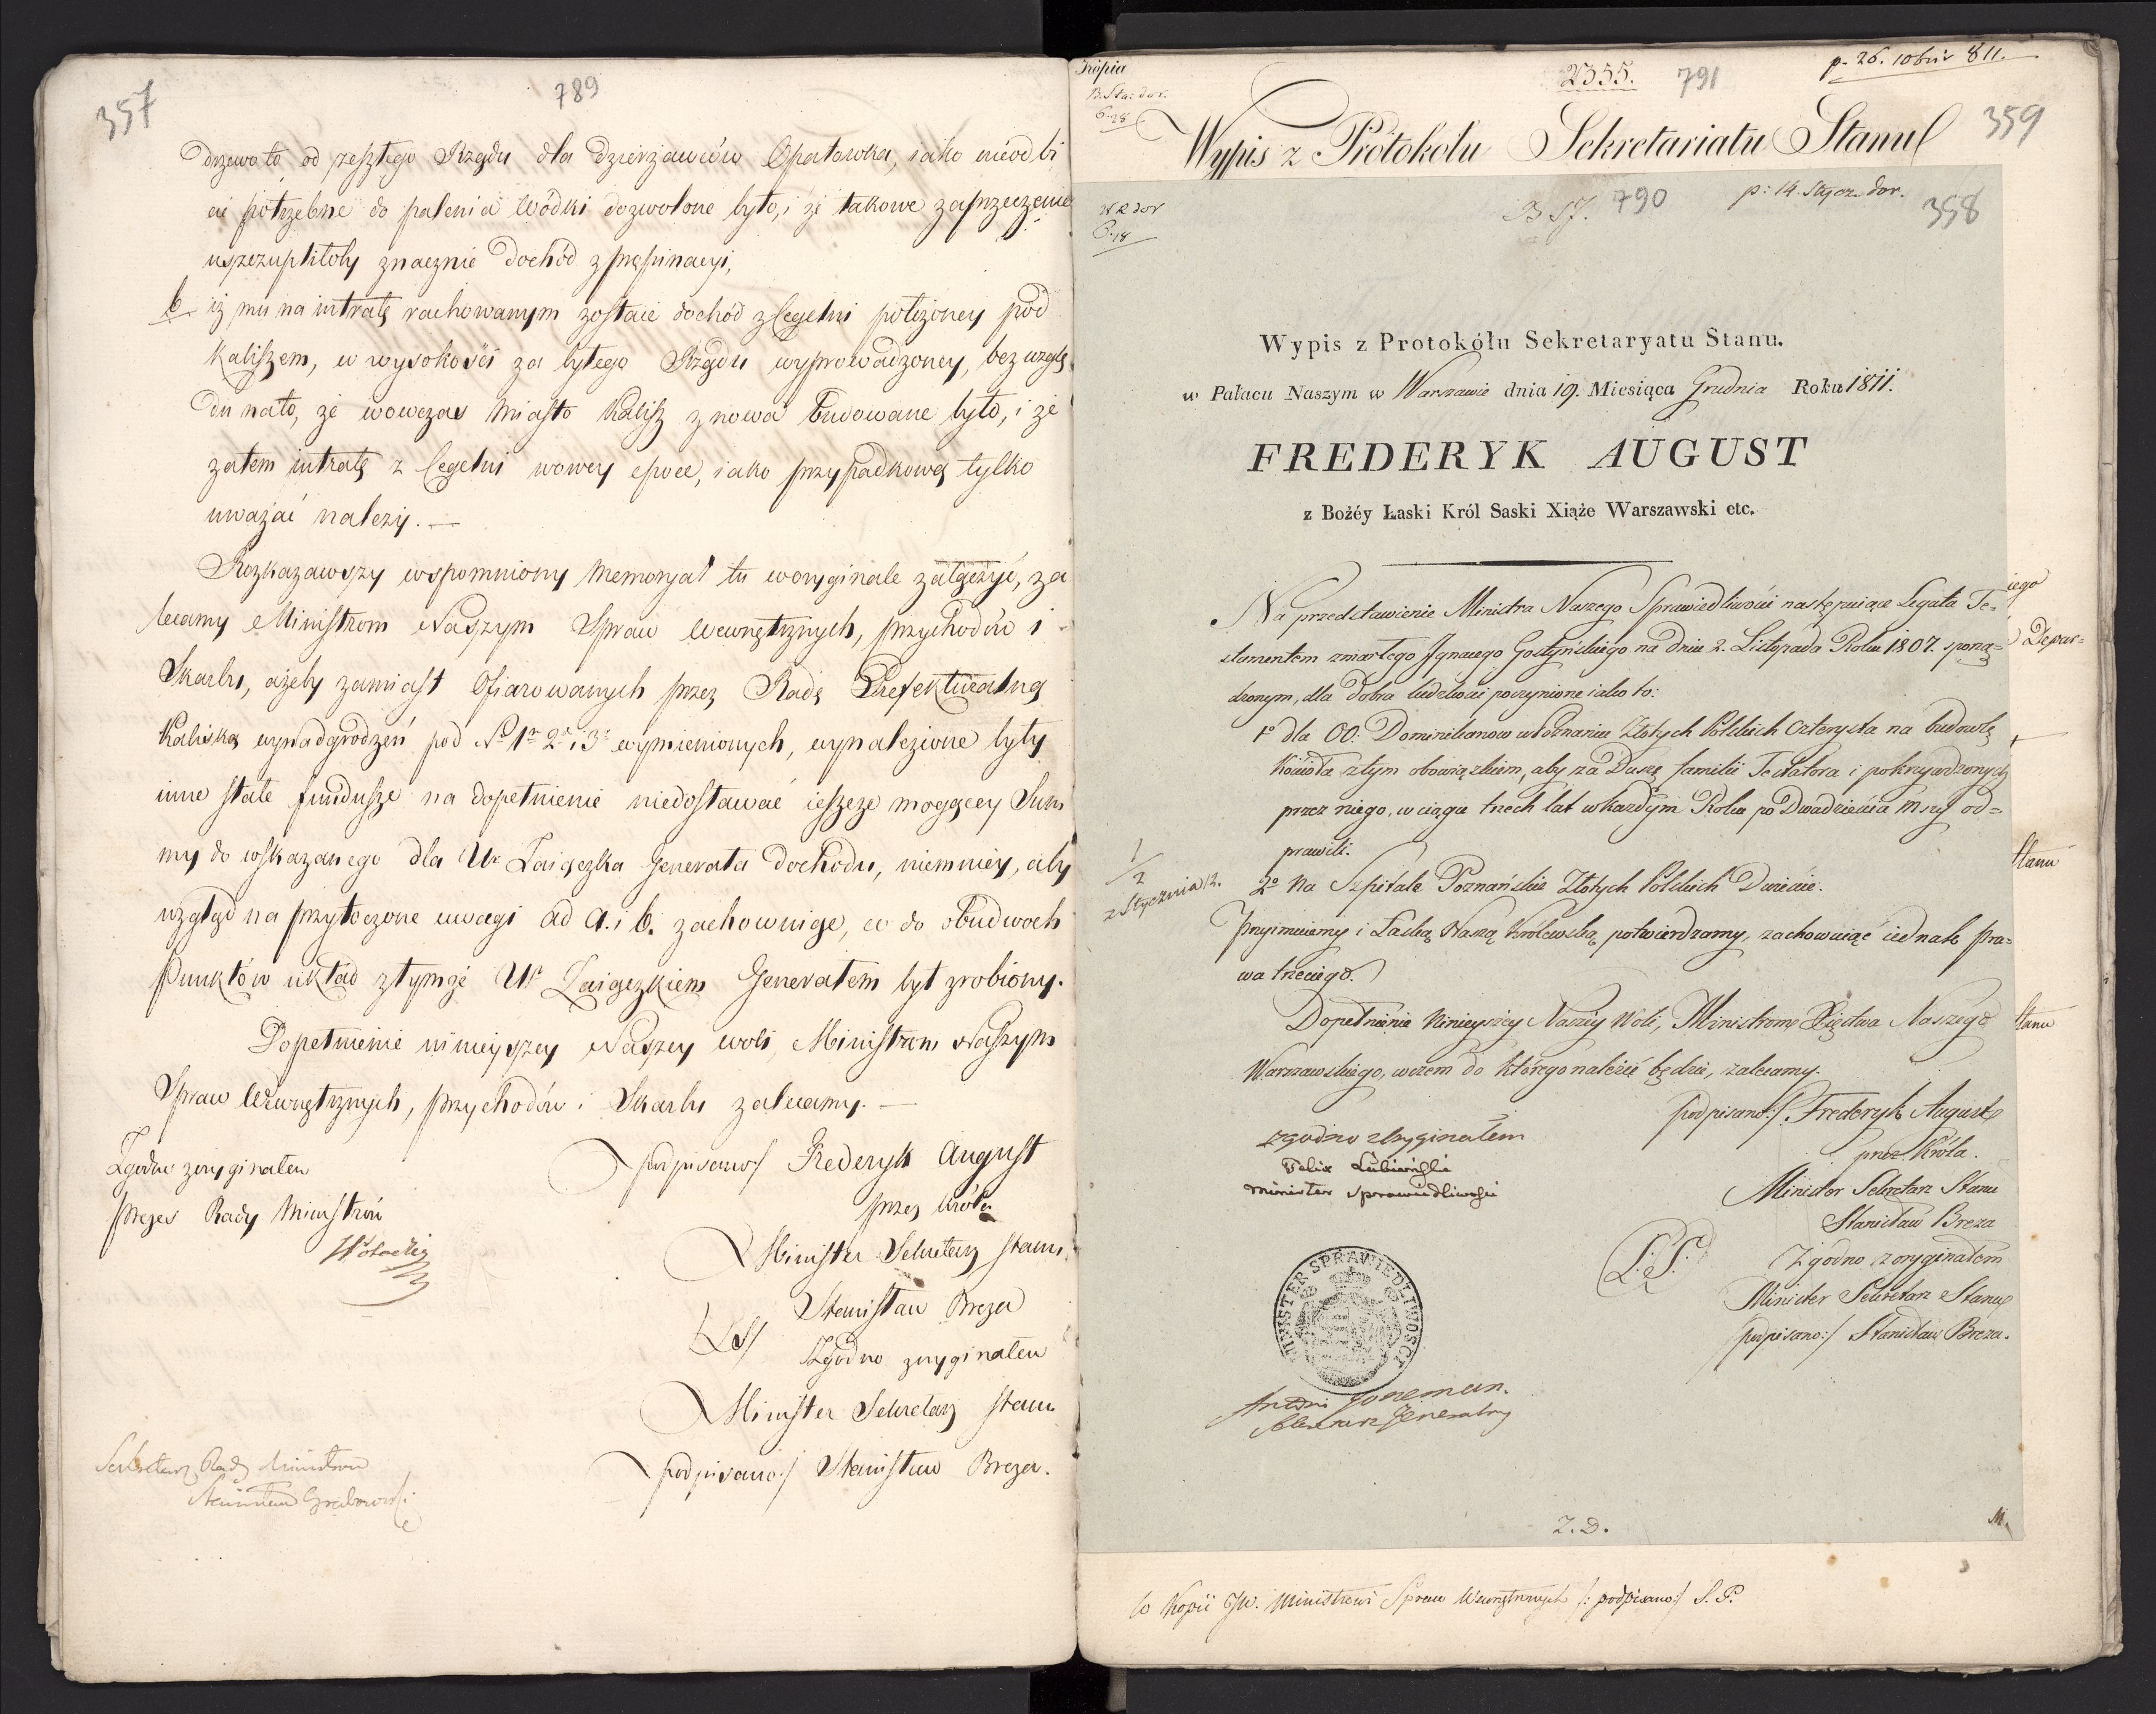 357
789
drzewa to od zeszłego Rządu dla dzierżawców Opatowka, iako nieodbi
cie potrzebne do palenia Wódki dozwolone było, i że takowe zaprzeczenie
uszczupliłoby znacznie dochód z propinacyi,
b. iż mu na intratę rachowanym zostaie dochód z Cegelni położoney pod
Kaliszem, w wysokości za byłego Rządu wyprowadzoney, bez wzglę
du na to, że wowczas Miasto Kalisz z nowa budowane było, i że
zatem intratę z Cegelni w owey epoce, iako przypadkową tylko
uważać należy. —
Rozkazawszy wspomniony Memoryał tu w oryginale załączyć, za
lecamy Ministrom Naszym Spraw Wewnętrznych, przychodów i
Skarbu, ażeby zamiast Ofiarowanych przez Radę Prefekturalną
Kaliską wynadgrodzeń pod No 1o 2o i 3o wymienionych, wynalezione były
inne stałe fundusze na dopełnienie niedostawać ieszcze mogącey Sum
my do wskazanego dla Ur Zaiączka Generała dochodu, niemniey, aby
wzgląd na przytoczone uwagi ad a. i b. zachowuiąc, co do obudwoch
Punktów układ z tymże Ur Zaiączkiem Generałem był zrobiony.
Dopełnienie ninieyszey Naszey woli, Ministrom Naszym
Spraw Wewnętrznych, przychodów i Skarbu zalecamy. —
podpisano/ Frederyk August
przez Króla
Minister Sekretarz Stanu
Stanisław Breza
/LS/
Zgodno z oryginałem
Minister Sekretarz Stanu
podpisano:/ Stanisław Breza.
Zgodno z oryginałem
Prezes Rady Ministrów
Sekretarz Rady Ministrow
Grabowski
Kopia
2355.
791
p. 26. 10bris 811.
359
Wypis z Protokołu Sekretariatu Stanu
790
p: 14. Stycz. dor.
358
Wypis z Protokółu Sekretaryatu Stanu.
w Pałacu Naszym w Warszawie dnia 19. Miesiąca Grudnia Roku 1811.
FREDERYK AUGUST
z Bożéy Łaski Król Saski Xiąże Warszawski etc.
Na przedstawienie Ministra Naszego Sprawiedliwości następuiące Legata Te=
stamentem zmarłego Ignacego Gostyńskiego na dniu 2. Listopada Roku 1807. sporzą=
dzonym, dla dobra ludzkości poczynione iako to:
1o dla OO. Dominikanow w Poznaniu Złotych Polskich czterysta na budowlę
Kościoła z tym obowiązkiem, aby za Duszę familii Testatora i pokrzywdzonych
przez niego, w ciągu trzech lat w każdym Roku po Dwadzieścia Mszy od=
prawili.
2o Na Szpitale Poznańskie Złotych Polskich Dwieście.
Przyimuiemy i Łaską Naszą Królewską potwierdzamy, zachowuiąc iednak pra=
wa trzeciego.
Dopełnienie Ninieyszéy Naszéy Woli, Ministrom Xięstwa Naszego
Warszawskiego, w czem do którego należeć będzie, zalecamy.
podpisano:/ Frederyk August
przez Króla.
Minister Sekretarz Stanu
Stanisław Breza
L.S.
Zgodno z oryginałem
Minister Sekretarz Stanu
podpisano:/ Stanisław Breza.
zgodno z Oryginałem
Felix Łubieński
Minister Sprawiedliwości
MINISTER SPRAWIEDLIWOSCI
Sekretarz Jeneralny
1/2
2 Stycznia 12.
iego
Depar=
Stanu
Stanu
Z.D.
M.
Co Kopii JW. Ministrowi Spraw Wewnętrznych /: podpisano:/ S. P.